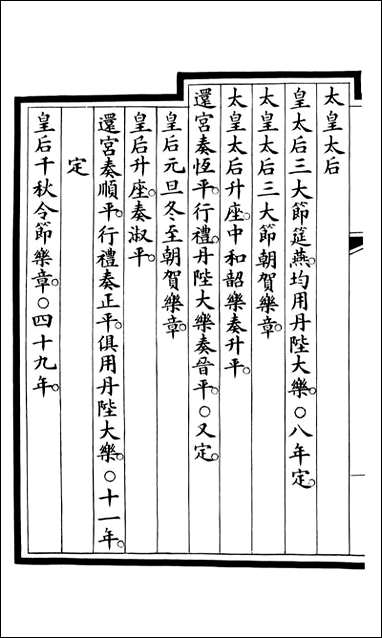 太皇太后
皇太后三大節筵燕。均用丹陛大樂。○八年定。
太皇太后三大節朝賀樂章。
太皇太后升座。中和韶樂奏升平。
還宮奏恆平。行禮。丹陛大樂奏晉平。○又定。
皇后元旦冬至朝賀樂章。
皇后升座。奏淑平。
還宮奏順平。行禮奏正平。俱用丹陛大樂。○十一年。
定
皇后千秋令節樂章。○四十九年。